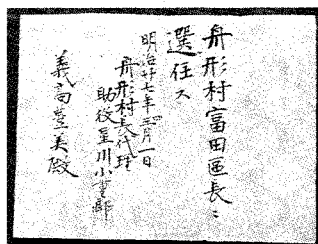 舟形村富田區長ニ
選任ス
明治廿七年四月一日
舟形村長代理
助役星川小重郎
義高豊美殿